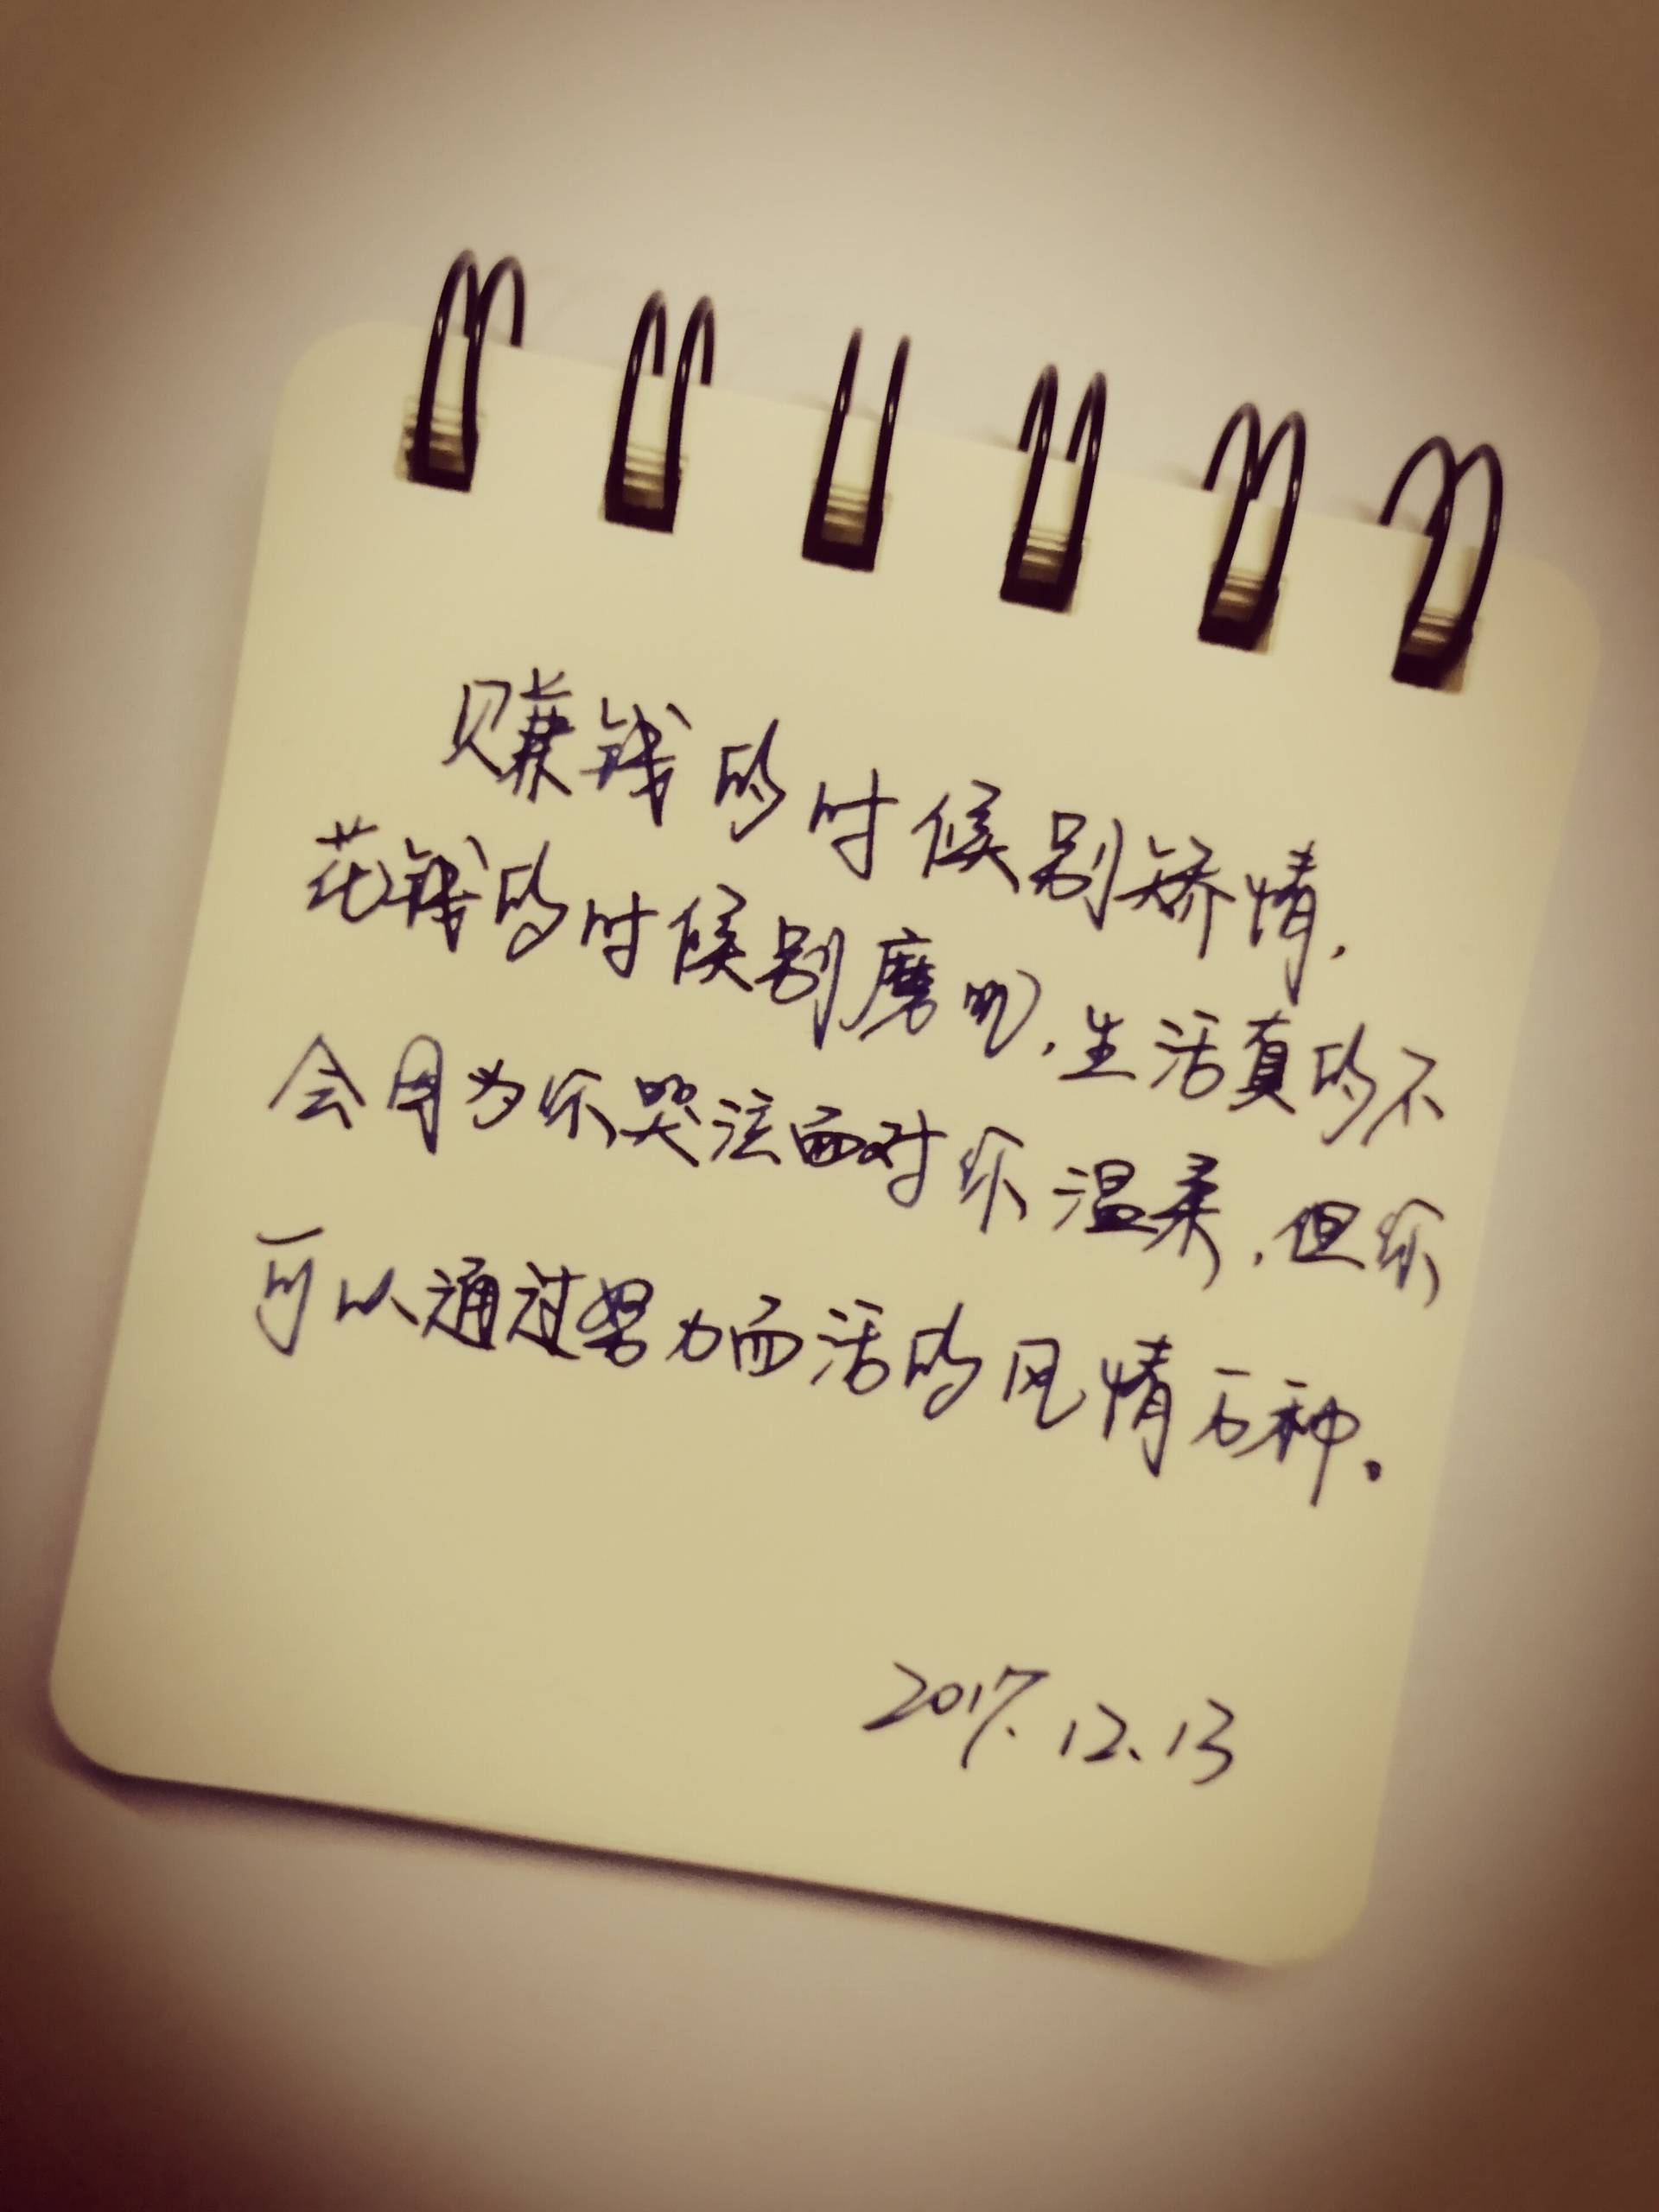 赚钱的时候别矫情，
花钱的时候别磨叽，生活真的不
会因为你哭泣而对你温柔，但你
可以通过努力而活的风情万种。
2017.12.13